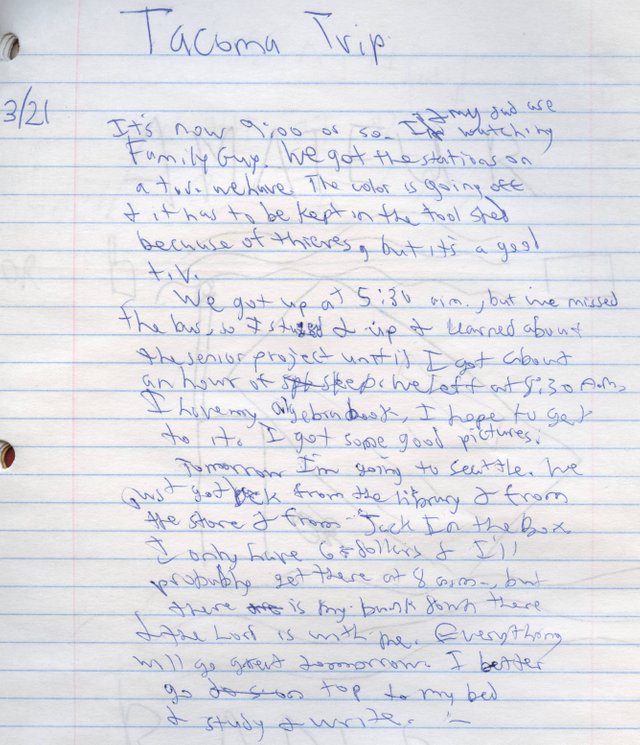 Tacoma Trip
3/21
& my dad are
It's now 9:00 or so. I'm watching
Family Guy. We got the stations on
a t.v. we have. The color is going off
& it has to be kept in the tool shed
because of thieves, but it's a good
t.v.
We got up at 5:30 a.m., but we missed
the bus, so I stayed up & learned about
the senior project until I got about
an hour of sleep. We left at 8:30 A.M.
I have my algebra book, I hope to get
to it. I got some good pictures.
Tomorrow I'm going to Seattle. We
just got back from the library & from
the store & from Jack In the Box
I only have 6 dollars & I'll
probably get there at 8 a.m., but
there is my bank down there
& the Lord is with me. Everything
will go great tommorrow. I better
go to top to my bed
& study & write.